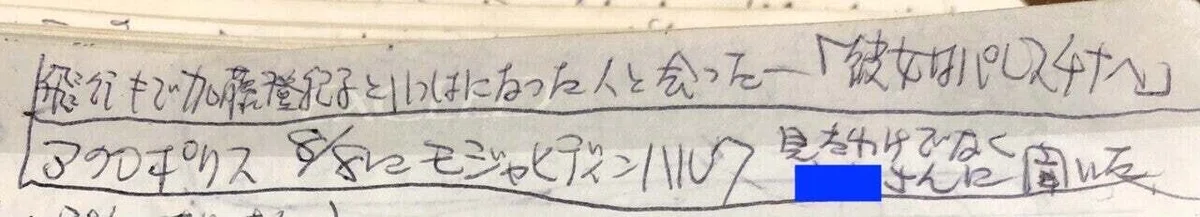 飛行キで加藤登紀子といっしょになった人と会った―「彼女はパレスチナへ」
アクロポリス 8/8に モジャヒディンハルク 見たわけでなく
さんに聞いた